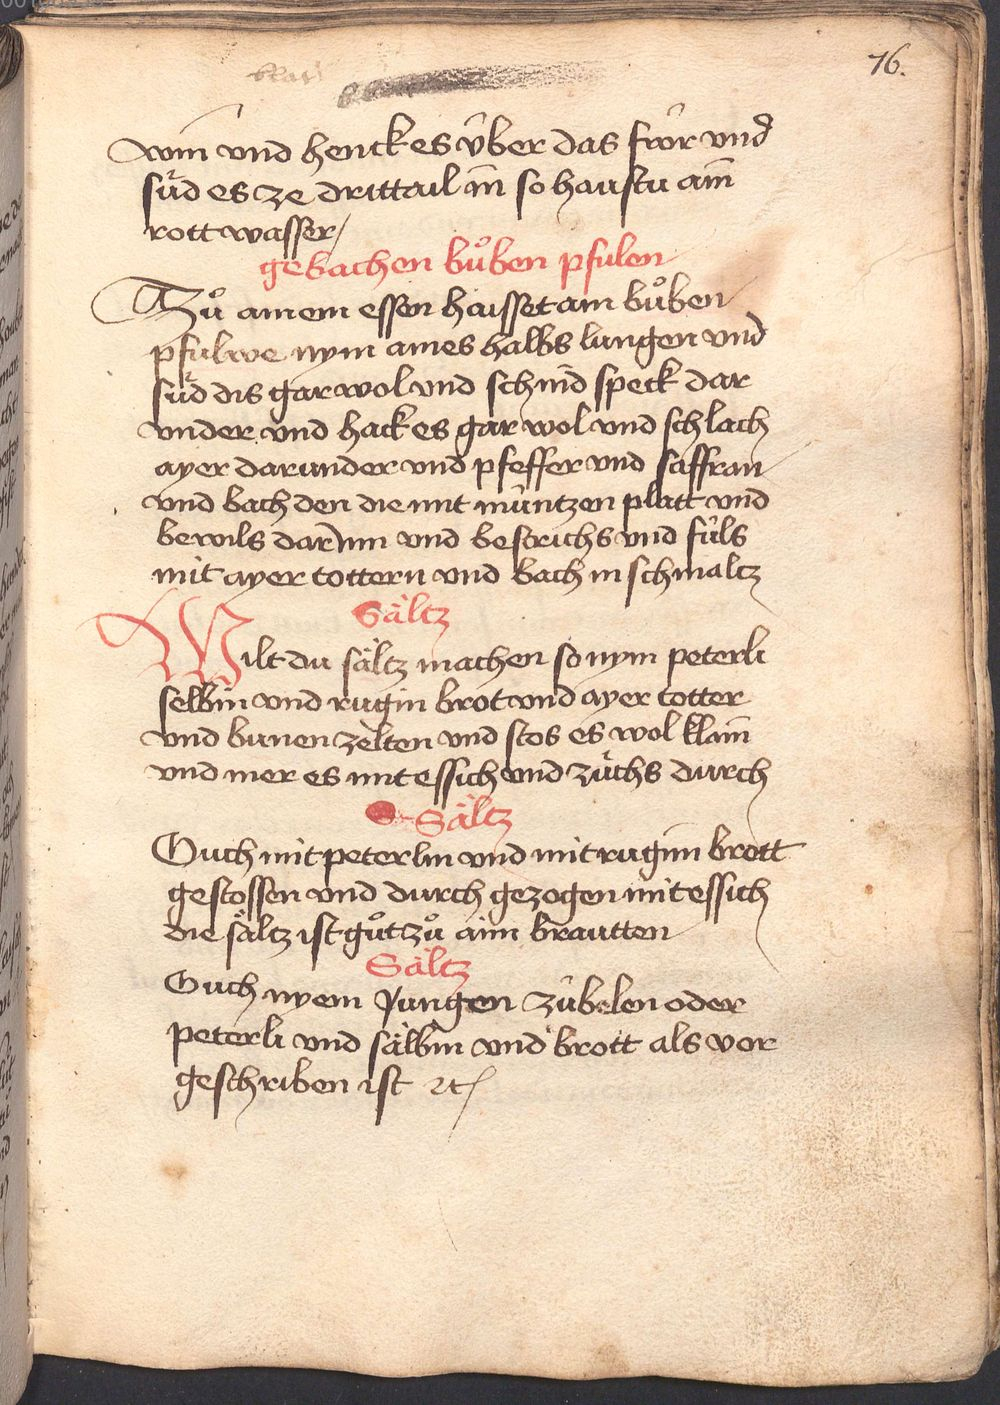 76.
win und henck es über das fwr und
sůd es ze drittail in so haustu ain
rott wasser /
gebachen bůben pfulen
Zů ainem essen haisset ain bůben
pfulwe nym aines halbs lungen und
sůd dis gar wol und schnid speck dar
under und hack es gar wol und schlach
ayer darunder und pfeffer und saffran
und bach den die mit müntzen platt und
bewils darinn und bestrichs und füls
mit ayer tottern und bach in schmaltz
Sältz
Wilt du sältz machen so nym peterli
selbin und rugin brot und ayer totter
und bunen zelten und stos es wol klain
und mer es mit essich und züchs durch
Sältz
Ouch mit peterlin und mit ruginn brott
gestossen und durch gezogen mit essich
die sältz ist gůt zů aim brautten
Sältz
Ouch nyem Jungen zübelen oder
peterli und sälbin und brott als vor
geschriben ist ꝛc